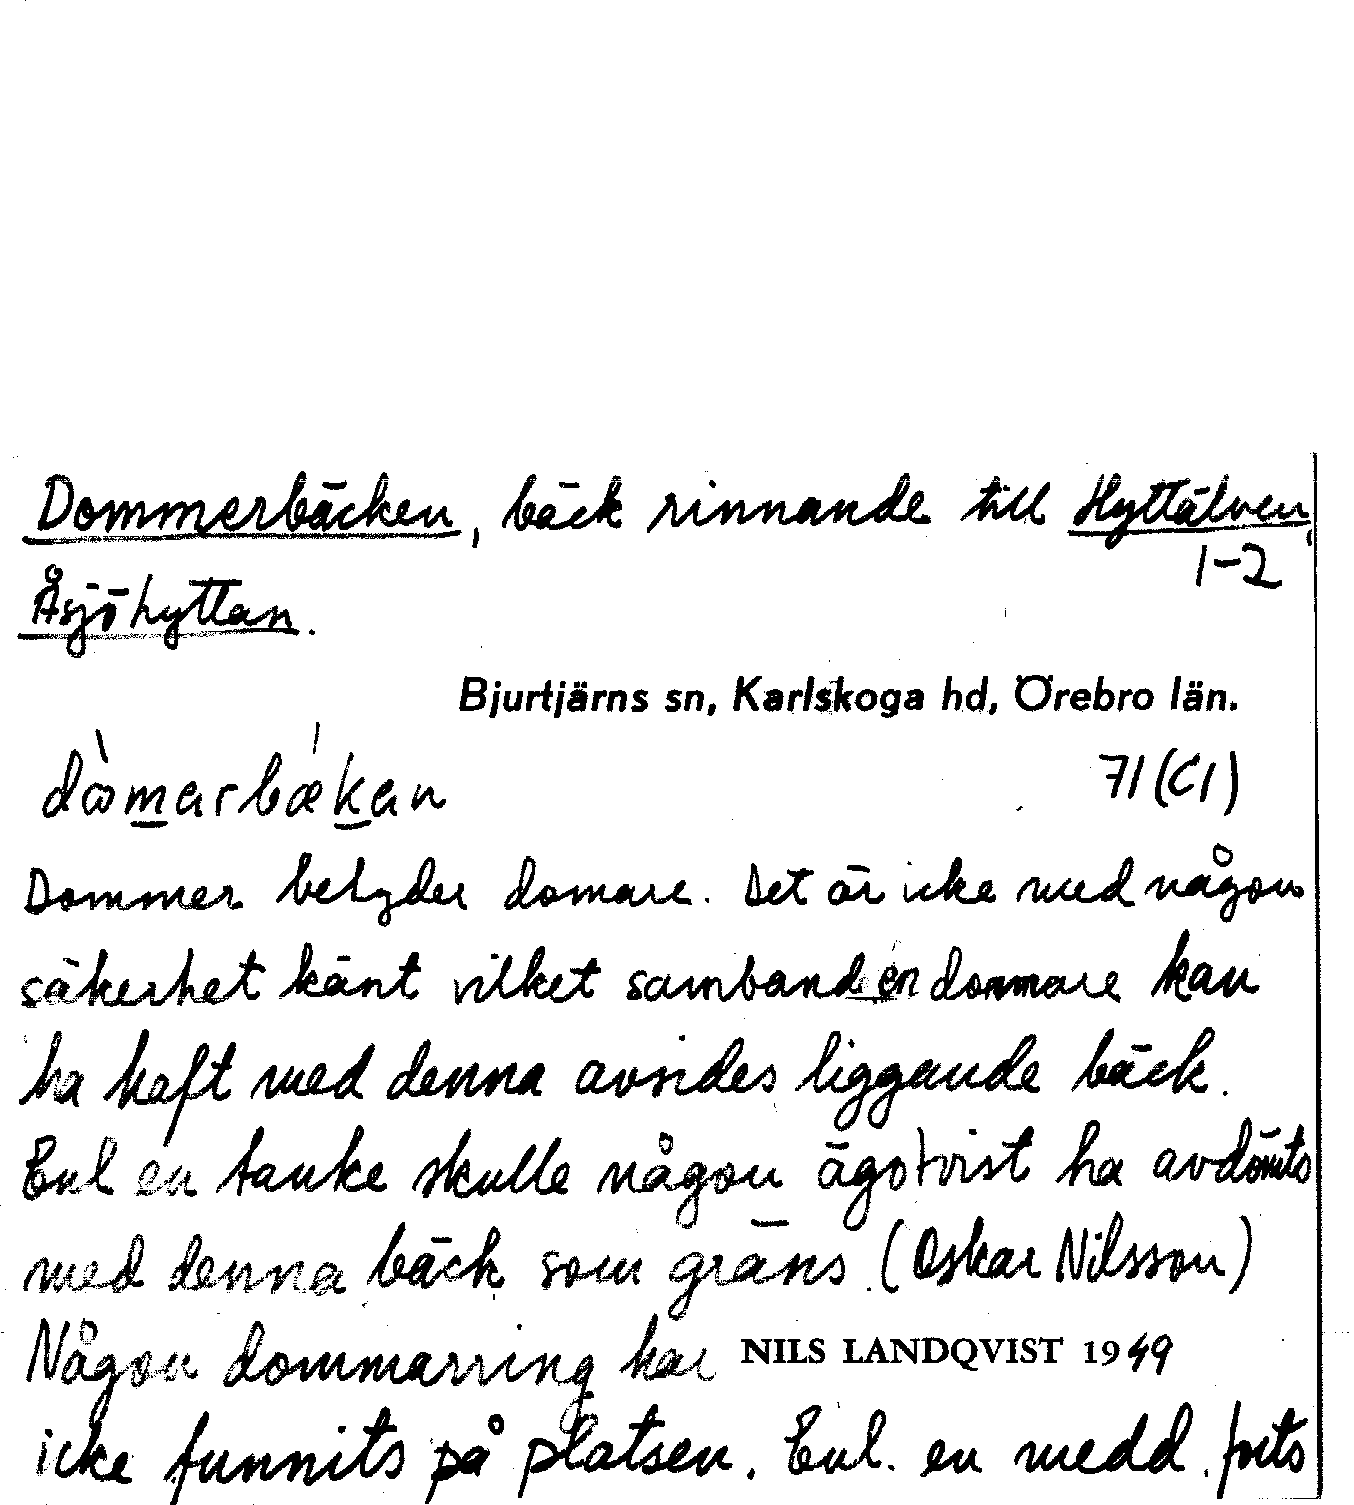 Dommerbäcken, bäck rinnande till Hyttälven,
1-2
Åsjöhyttan.
Bjurtjärns sn, Karlskoga hd, Örebro län.
71(C1)
Dommer betyder domare. Det är icke med någon
säkerhet känt vilket samband en dommare kan
ha haft med denna avsides liggande bäck.
Enl en tanke skulle någon ägotvist ha avdömts
med denna bäck som gräns. (Oskar Nilsson)
Någon dommarring har NILS LANDQVIST 1949
icke funnits på platsen. Enl. en medd. forts